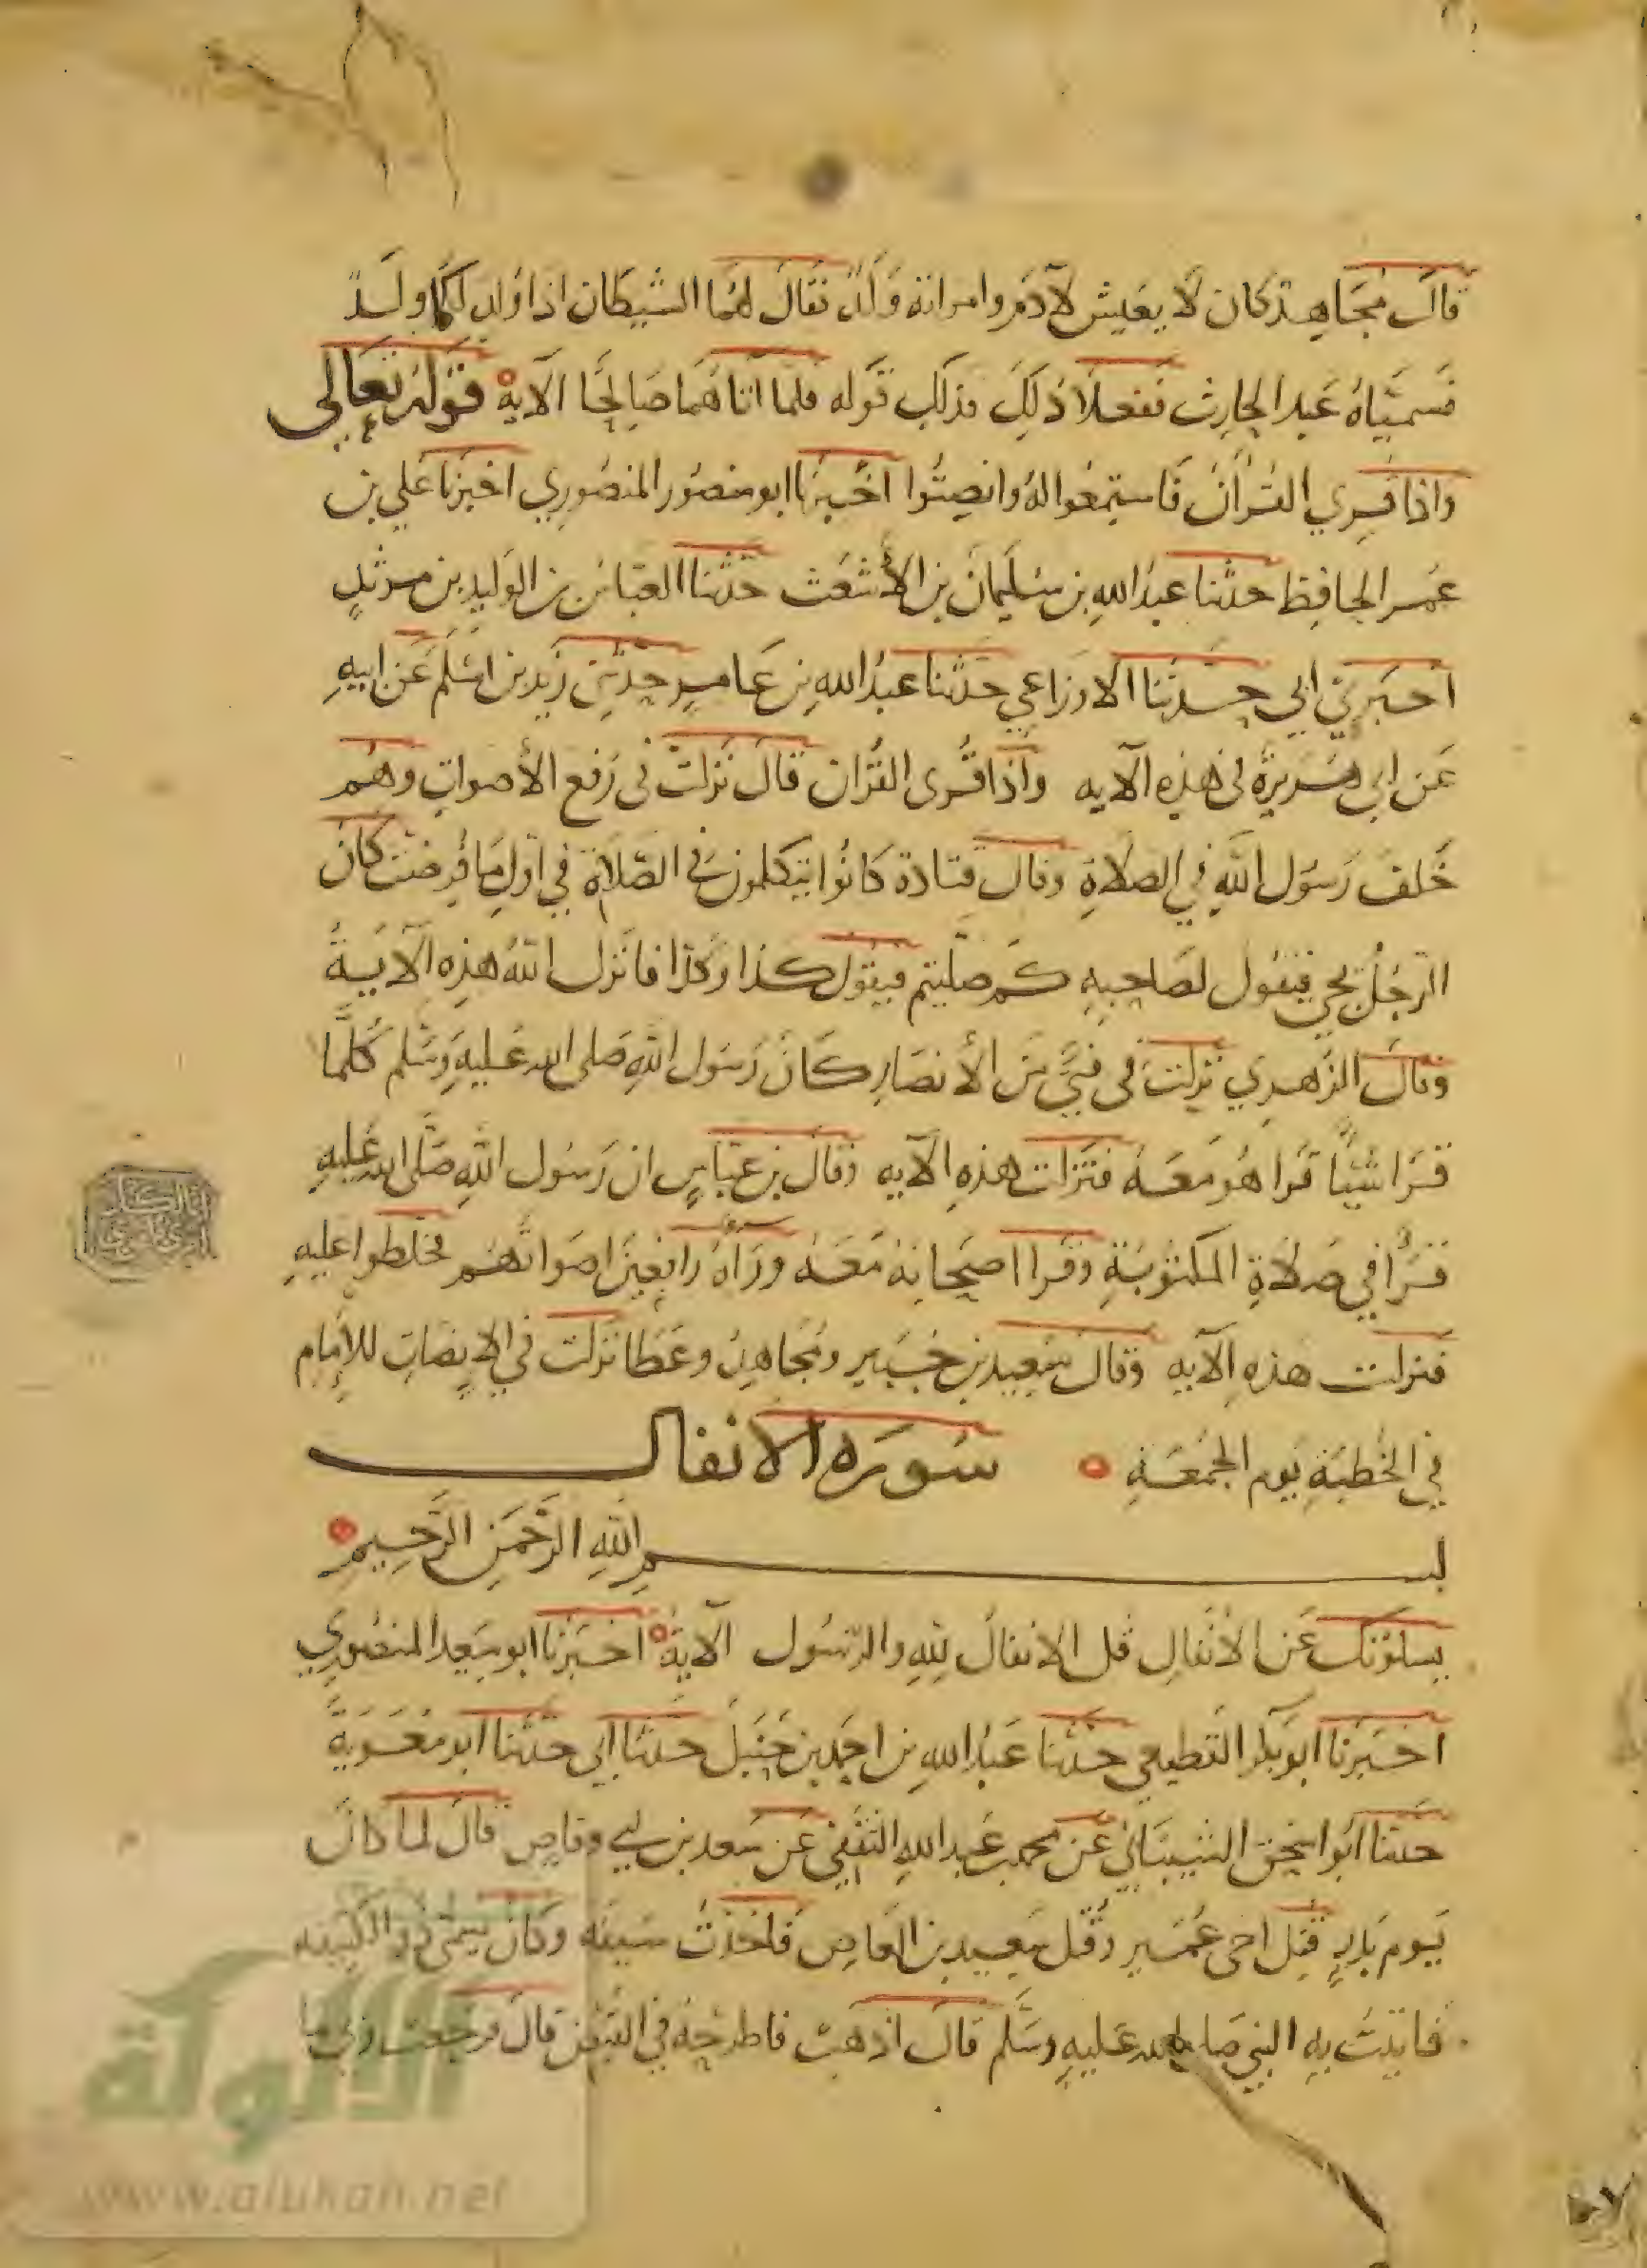 قال مجاهد كان لا يعيش لآدم وامراته ولد فقال لهما الشيطان اذا ولد لكما ولد
فسمياه عبد الحارث ففعلا ذلك فذلك قوله فلما اتاهما صالحا الآية قوله تعالى
واذا قري القرآن فاستمعوا له وانصتوا اخبرنا ابو منصور المنصوري اخبرنا علي بن
عمر الحافظ حدثنا عبد الله بن سليمان بن الأشعث حدثنا العباس بن الوليد بن مزيد
اخبرني ابي حدثنا الاوزاعي حدثنا عبد الله بن عامر حدثني زيد بن اسلم عن ابيه
عن ابي هريرة في هذه الآيه واذا قرى القرآن قال نزلت في رفع الأصوات وهم
خلف رسول الله في الصلاة وقال قتادة كانوا يتكلمون في الصلاة في اول ما فرضت كان
الرجل يجي فيقول لصاحبه كم صليتم فيقول كذا وكذا فانزل الله هذه الآية
وقال الزهري نزلت في فتى من الأنصار كان رسول الله صلى الله عليه وسلم كلما
قرا شيئا قرا هو معه فنزلت هذه الآيه وقال بن عباس ان رسول الله صلى الله عليه
قرأ في صلاة المكتوبة وقرا اصحابه معه وراه رافعين اصواتهم فخلطوا عليه
فنزلت هذه الآيه وقال سعيد بن جبير ومجاهد وعطا نزلت في الانصات للإمام
في الخطبة يوم الجمعة سوره الانفال
بسم الله الرحمن الرحيم
يسلونك عن الانفال قل الانفال لله والرسول الآية اخبرنا ابو سعيد المنصوري
اخبرنا ابو بكر القطيعي حدثنا عبد الله بن احمد بن حنبل حدثنا ابي حدثنا ابو معوية
حدثنا ابو اسحق الشيباني عن محمد بن عبد الله الثقفي عن سعد بن ابي وقاص قال لما كان
يوم بدر قتل اخى عمير وقتل سعيد بن العاص فاخذت سيفه وكان يسمى ذو الكتيفه
فاتيت به النبي صلى الله عليه وسلم قال اذهب فاطرحه في القبض قال فرجعت وبي ما
الألوكة
www.alukah.net